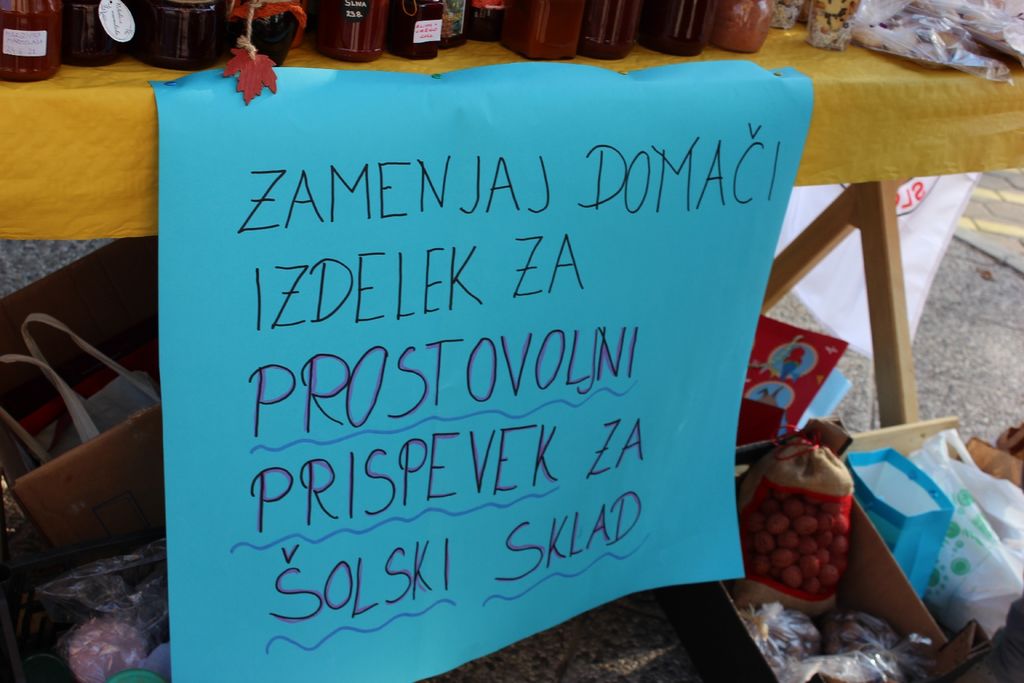 SLIVA
23.8.
ZAMENJAJ DOMAČI
IZDELEK ZA
PROSTOVOLJNI
PRISPEVEK ZA
ŠOLSKI SKLAD